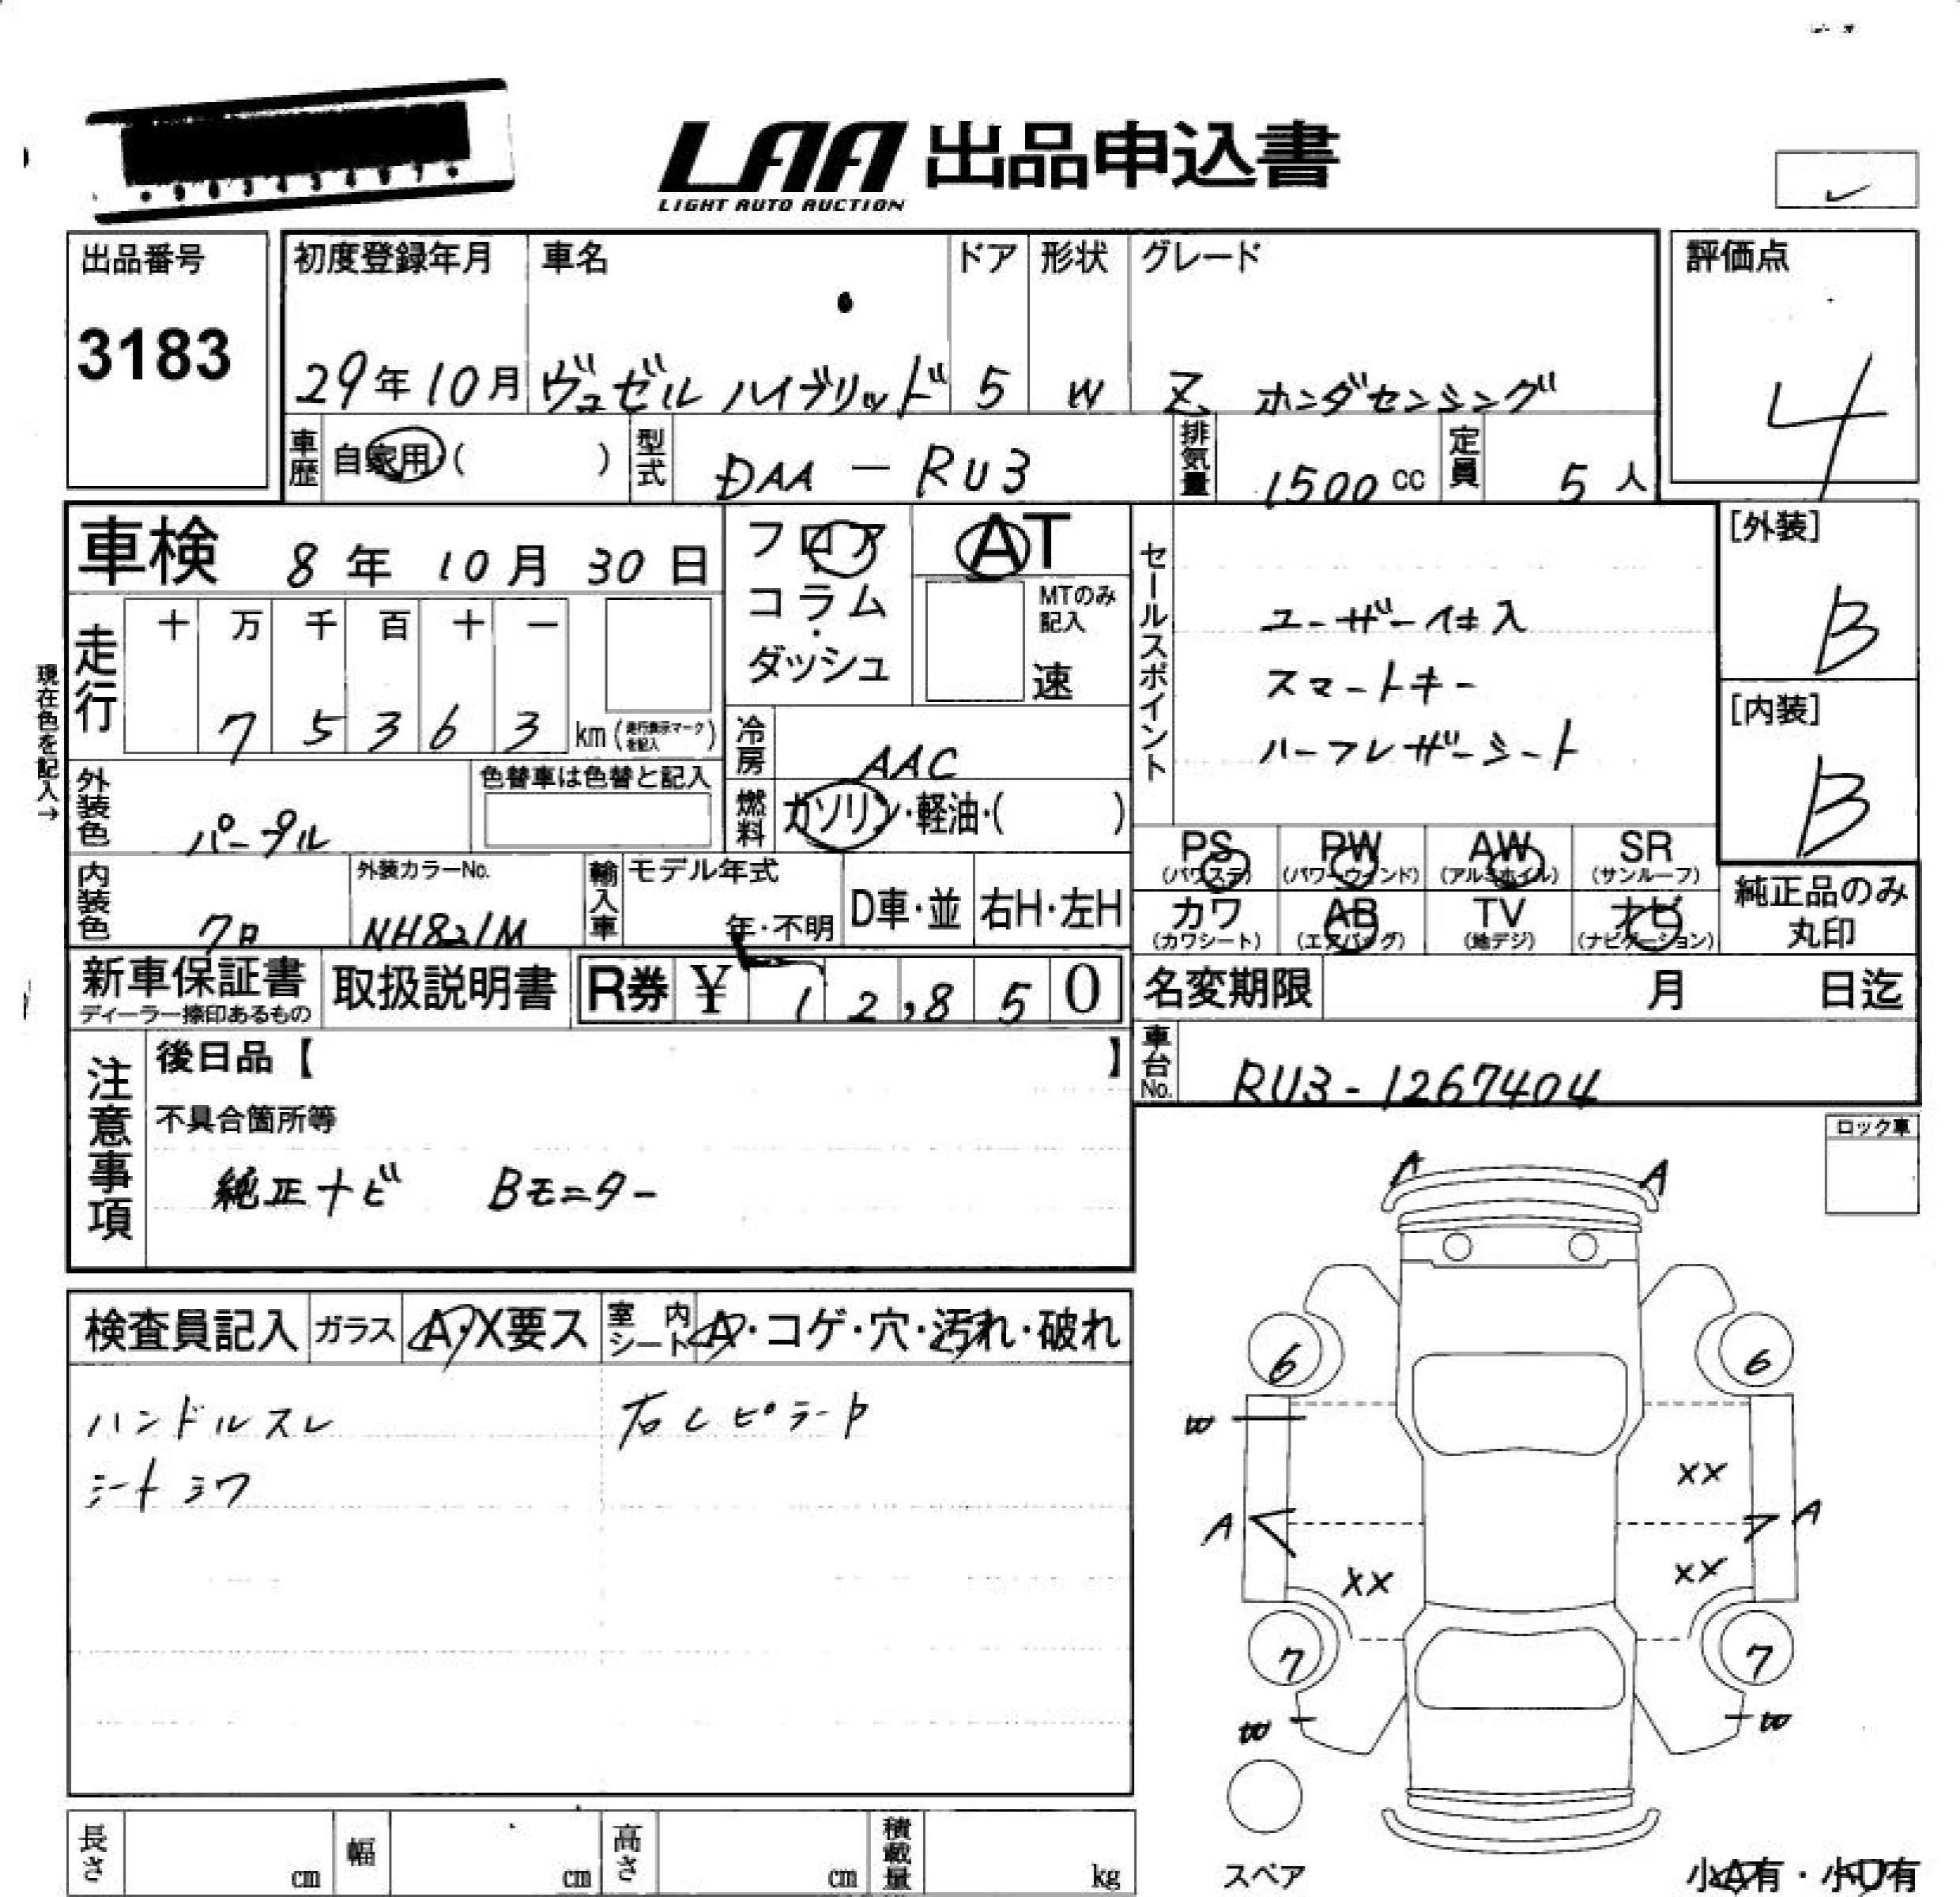 LAA 出品申込書
LIGHT AUTO AUCTION
出品番号
3183
初度登録年月 車名 ドア 形状 グレード
29年10月 ヴェゼル ハイブリッド 5 W Z ホンダセンシング
評価点
4
車歴 自家用・( ) 型式 DAA-RU3 排気量 1500cc 定員 5人
車検 8年10月30日
フロア・コラム・ダッシュ
AT
MTのみ記入
速
セールスポイント
ユーザー仕入
スマートキー
ハーフレザーシート
[外装]
B
[内装]
B
現在色を記入→
走行 十 万 千 百 十 一
7 5 3 6 3 km(走行表示マークを記入)
冷房 AAC
燃料 ガソリン・軽油・( )
外装色 パープル
色替車は色替と記入
内装色 クロ
外装カラーNo.
NH821M
輸入車 モデル年式
年・不明
D車・並
右H・左H
PS(パワステ) PW(パワーウインド) AW(アルミホイル) SR(サンルーフ)
カワ(カワシート) AB(エアバッグ) TV(地デジ) ナビ(ナビゲーション)
純正品のみ丸印
新車保証書
ディーラー捺印あるもの
取扱説明書
R券 ¥ 12,850
名変期限 月 日迄
車台No. RU3-1267404
注意事項
後日品【 】
不具合箇所等
純正ナビ Bモニター
ロック車
検査員記入 ガラス A・X要ス 室内シート A・コゲ・穴・汚れ・破れ
ハンドルスレ
シートシワ
A A
6 6
W
XX
A A
XX XX
7 7
W W
スペア
長さ cm 幅 cm 高さ cm 積載量 kg
小A有・小U有